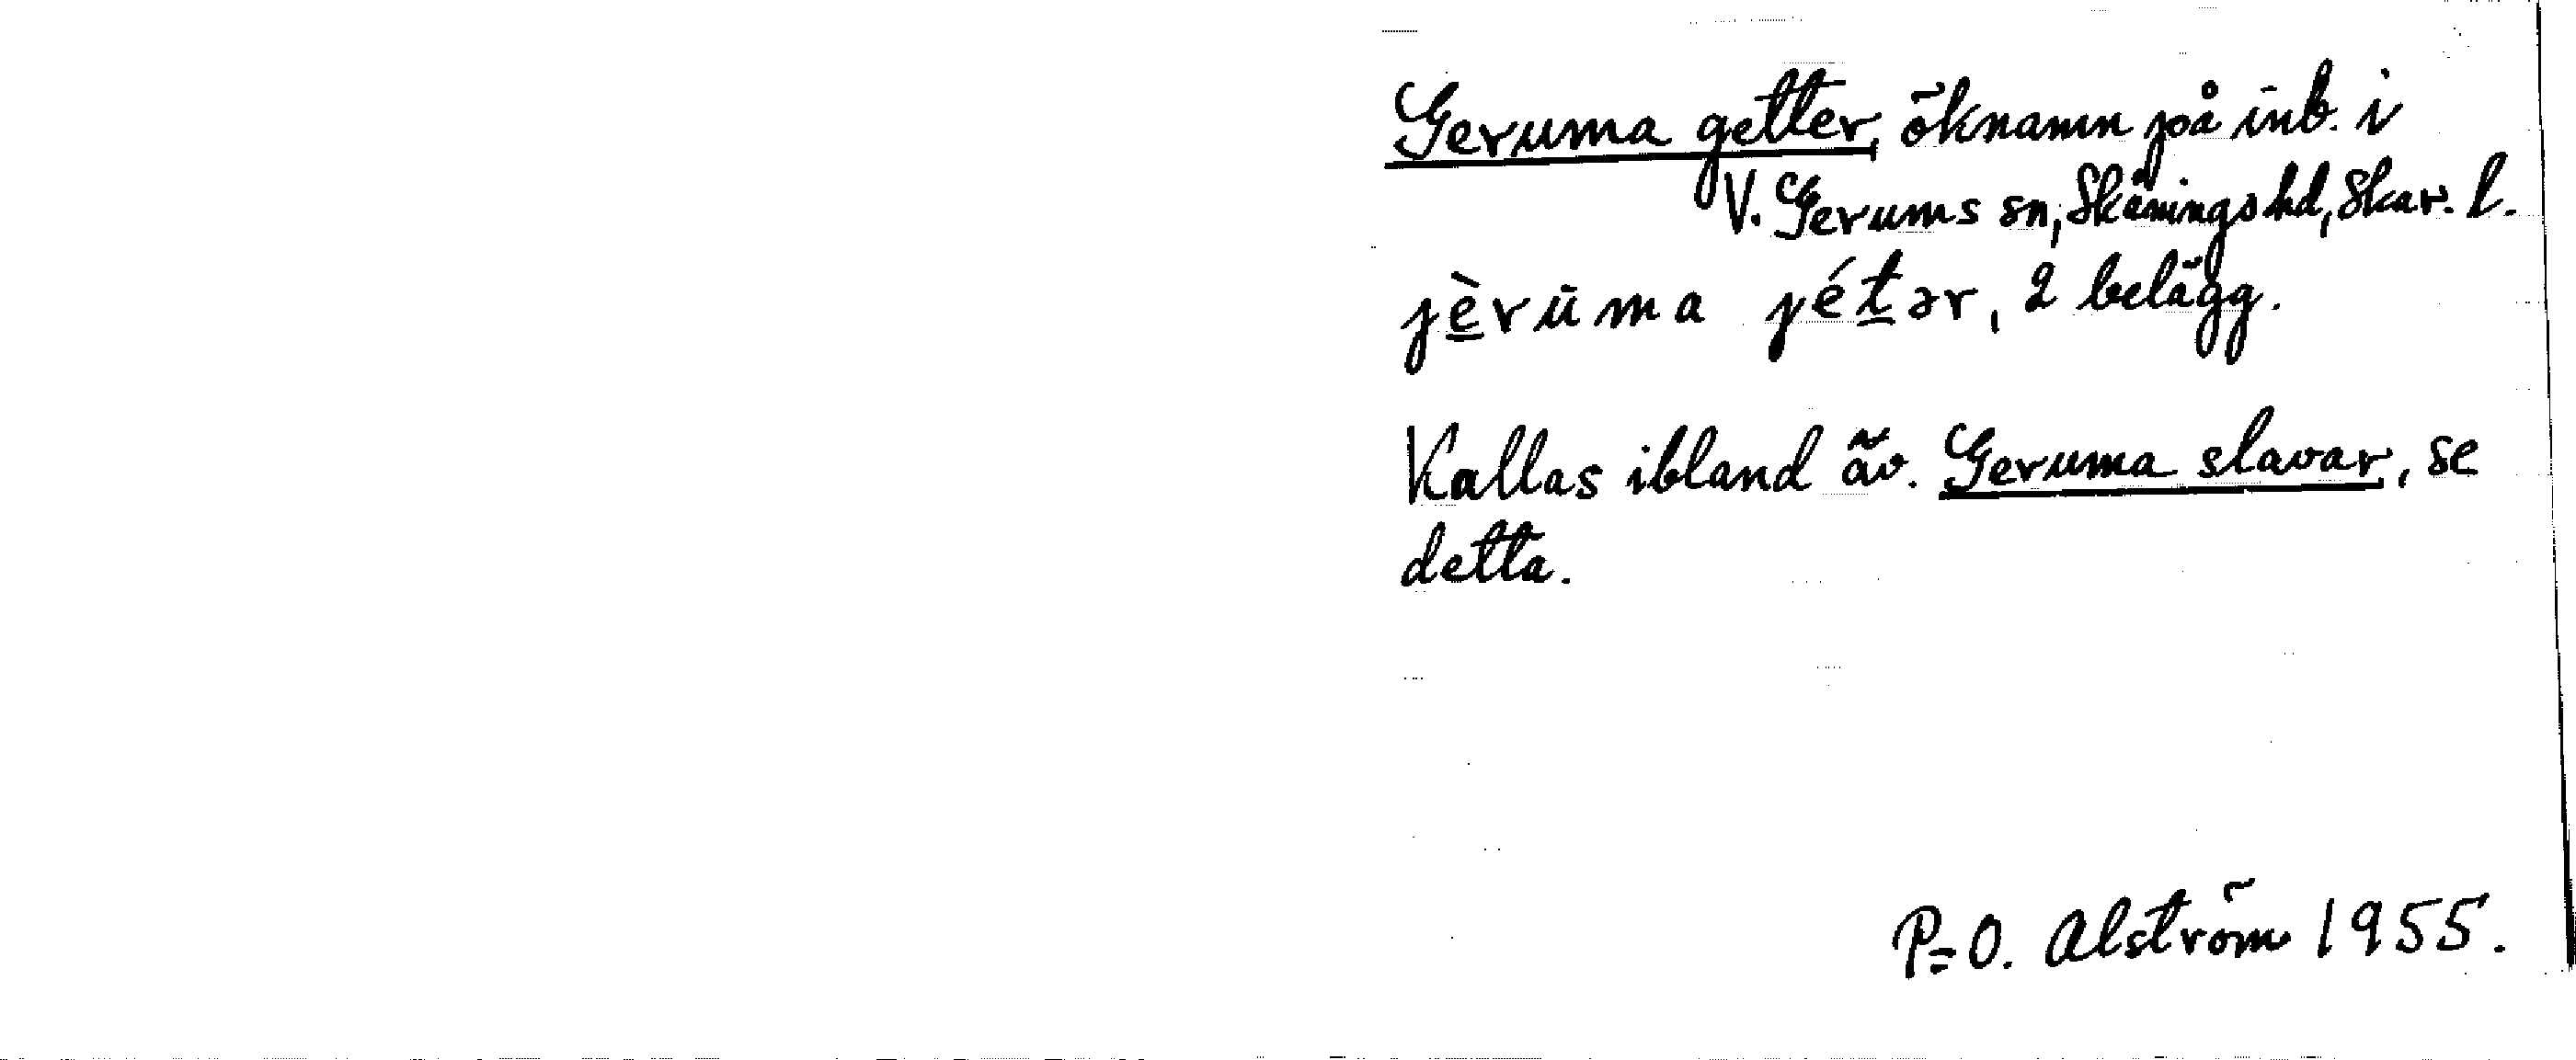 Geruma getter, öknamn på inb. i
V. Gerums sn, Skånings hd, Skar. l.
jèrūma jétər, 2 belägg.
Kallas ibland äv. Geruma slavar, se
detta.
P=O. Alström 1955.